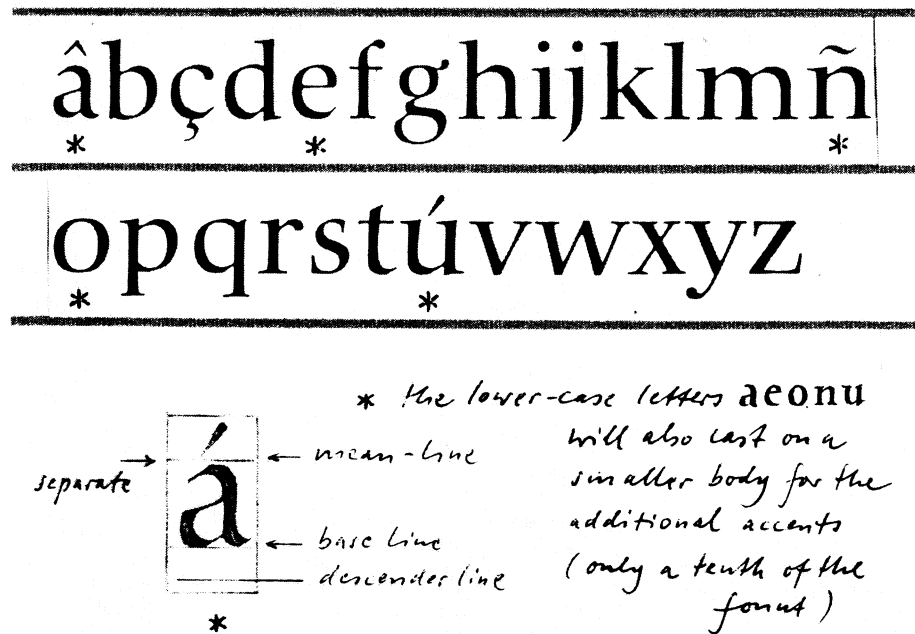 âbçdefghijklmñ
* * *
opqrstúvwxyz
* *
* the lower-case letters aeonu
will also cast on a
smaller body for the
additional accents
(only a tenth of the
fount)
separate
á
mean-line
base line
descender line
*